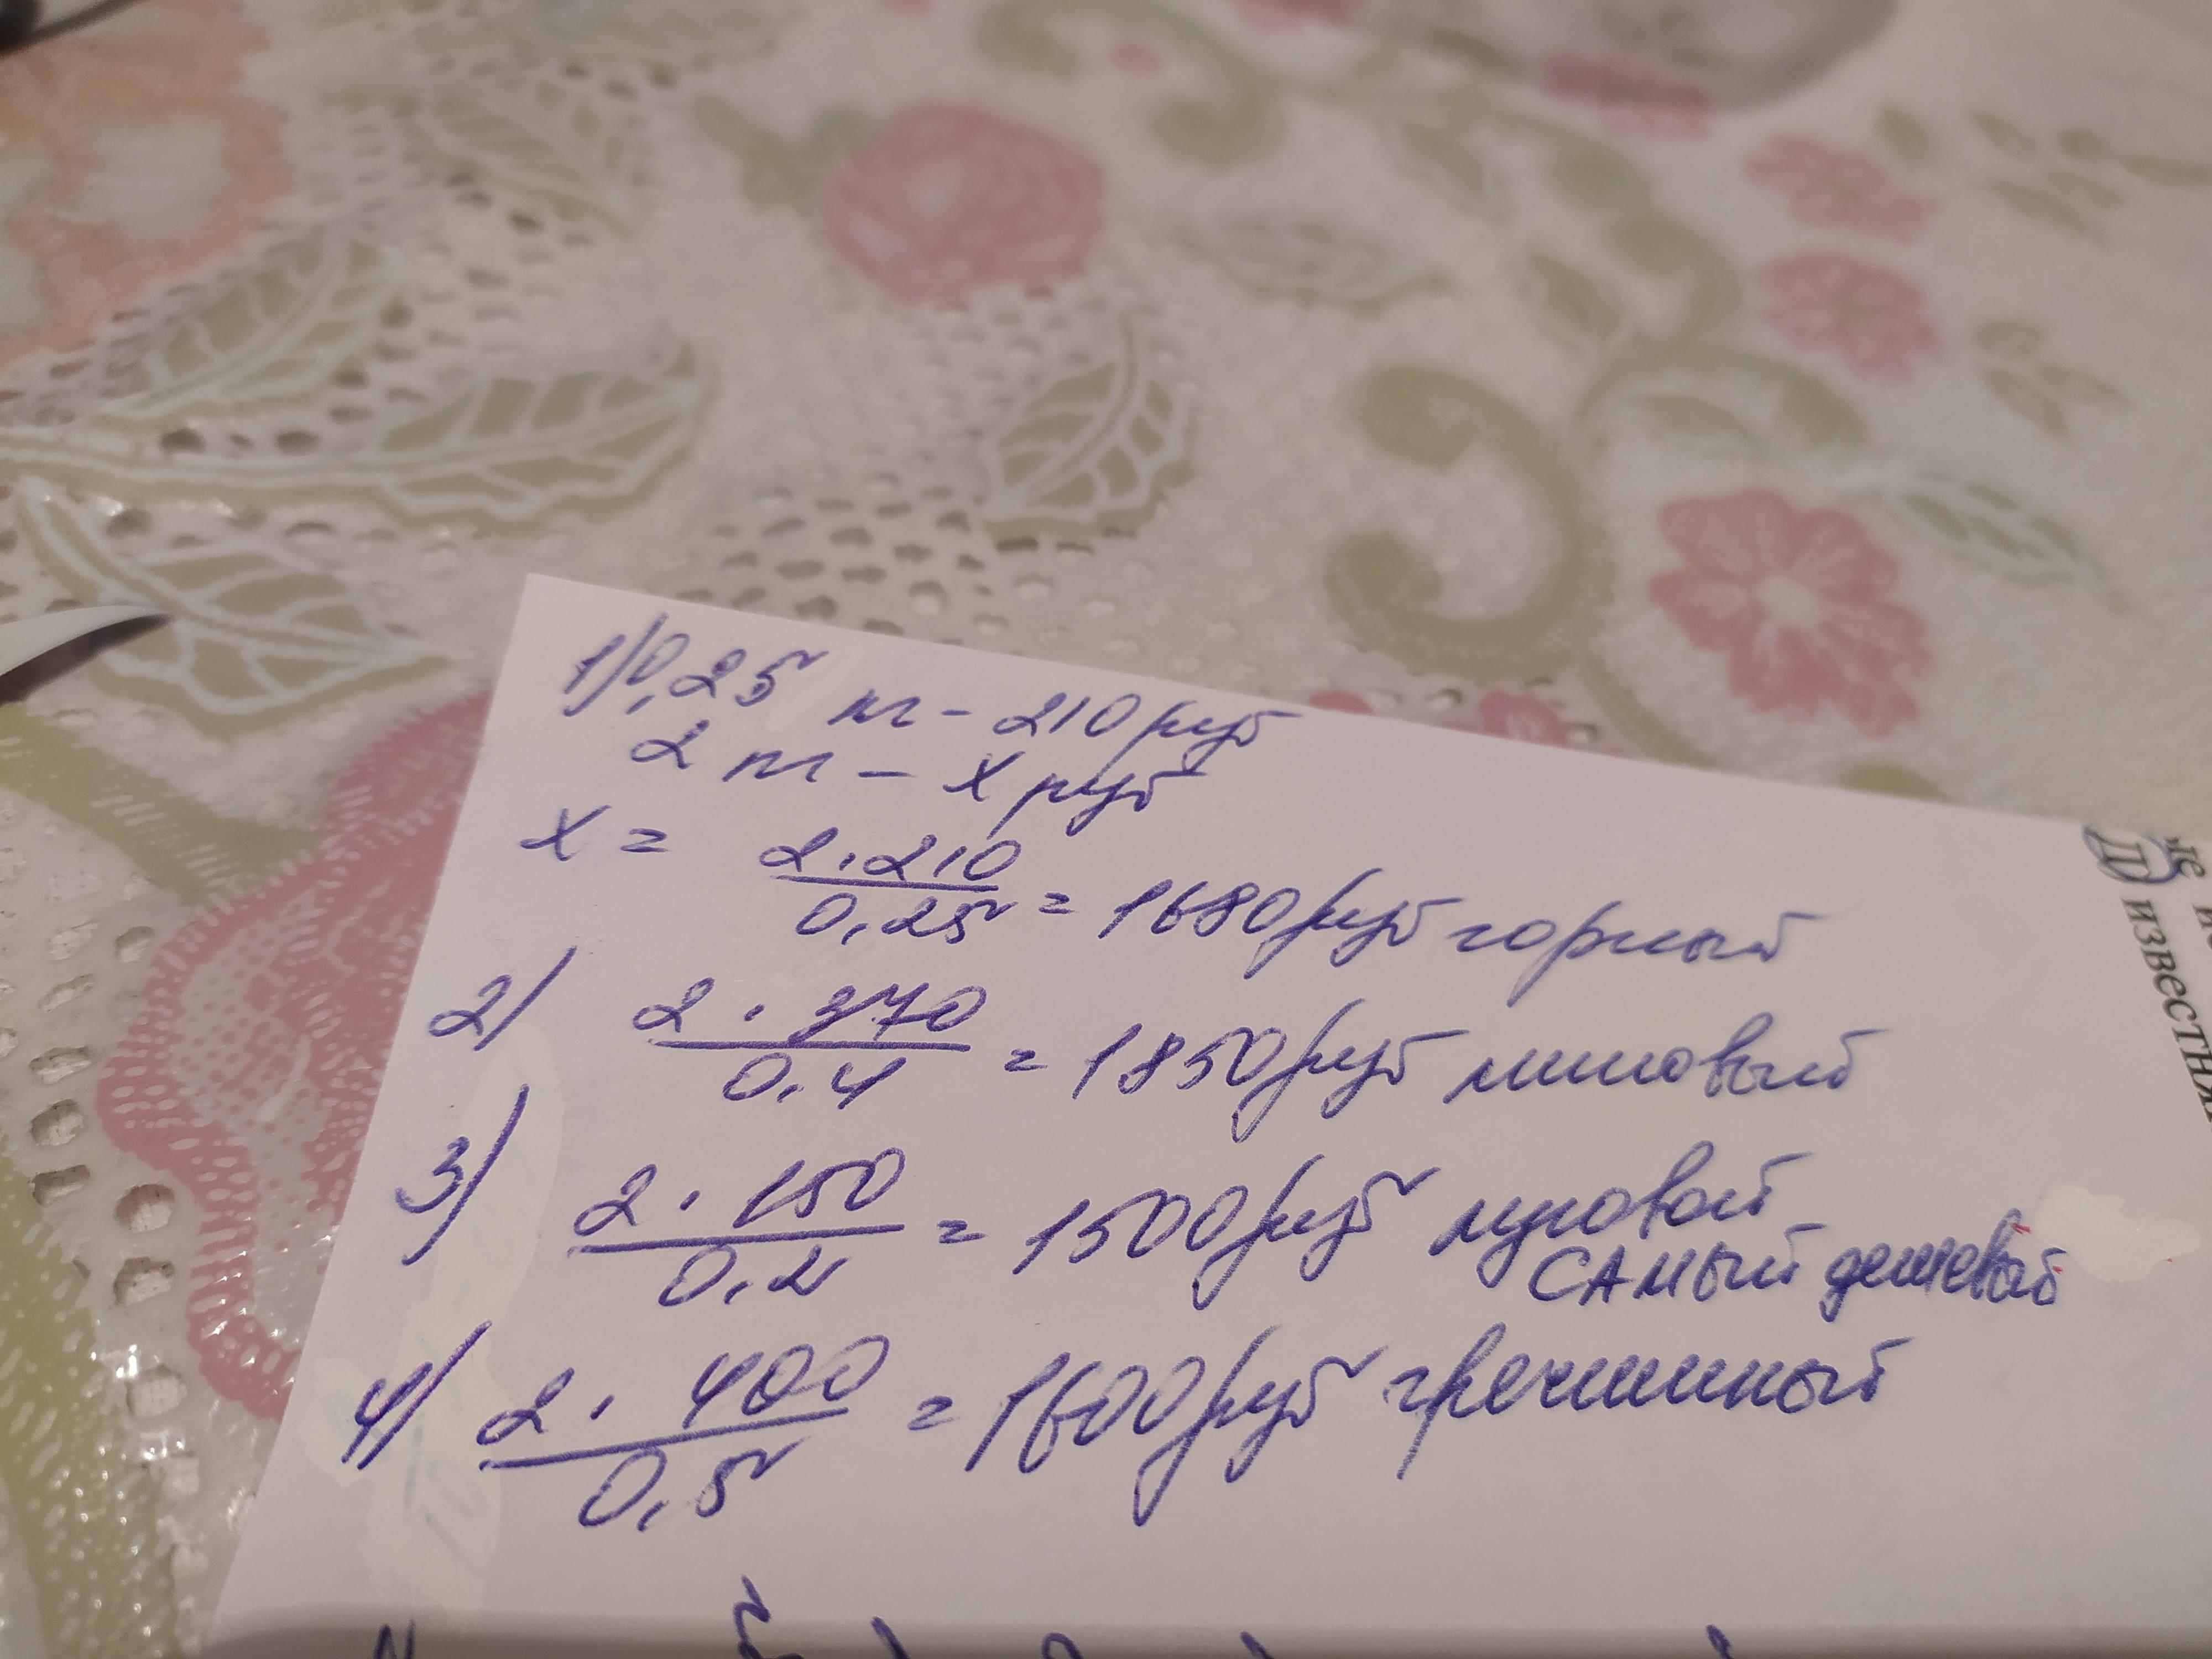 1) 0,25 кг - 210 руб
2 кг - х руб
х = 2 · 210 / 0,25 = 1680 руб горный
2) 2 · 370 / 0,4 = 1850 руб липовый
3) 2 · 150 / 0,2 = 1500 руб луговой
САМЫЙ дешевой
4) 2 · 400 / 0,5 = 1600 руб гречишный
Д